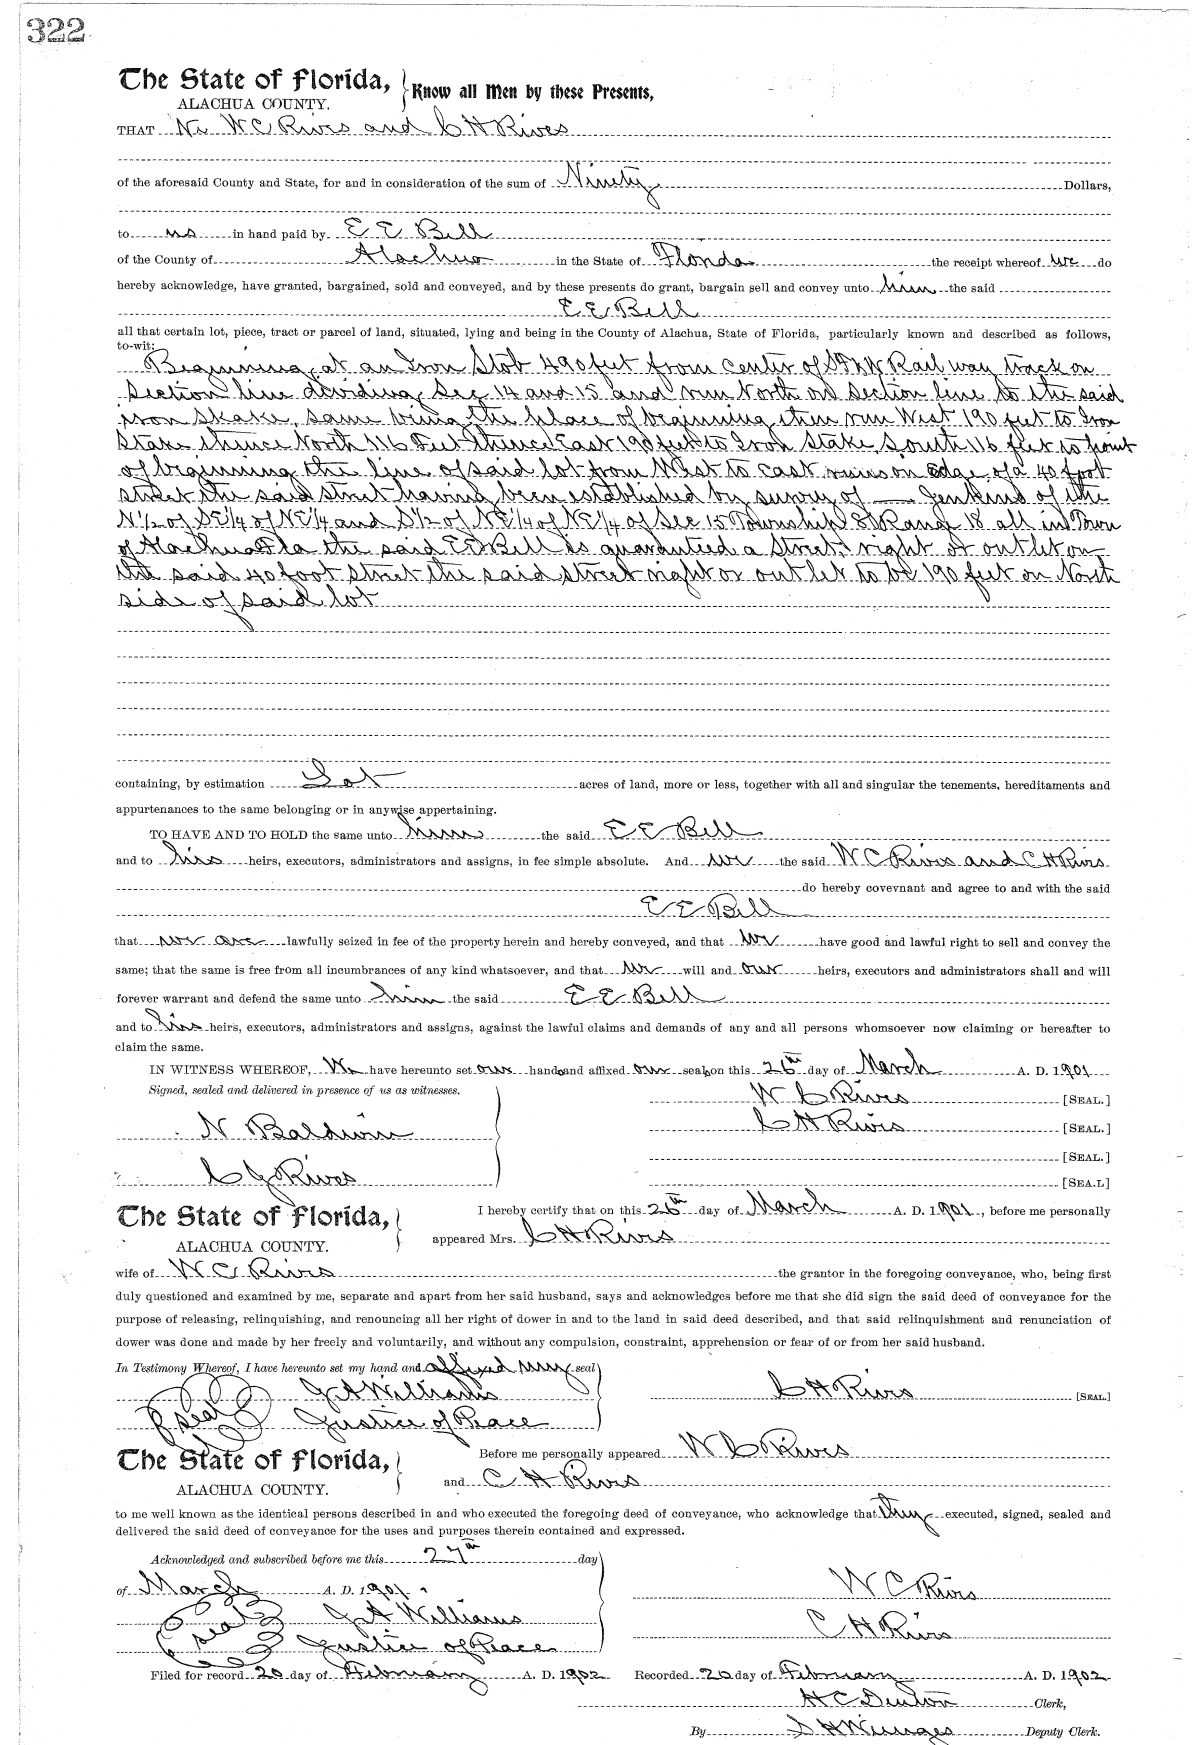 322
The State of Florida, Know all Men by these Presents,
ALACHUA COUNTY.
THAT We W C Rivis and C H Rives
of the aforesaid County and State, for and in consideration of the sum of Ninety Dollars,
to us in hand paid by E E Bell
of the County of Alachua in the State of Florida the receipt whereof we do
hereby acknowledge, have granted, bargained, sold and conveyed, and by these presents do grant, bargain sell and convey unto him the said
E E Bell
all that certain lot, piece, tract or parcel of land, situated, lying and being in the County of Alachua, State of Florida, particularly known and described as follows,
to-wit:
Beginning at an Iron Stob 490 feet from center of SF&W Rail way track on
Section line dividing Sec 14 and 15 and run North on Section line to the said
iron Skake, same being the place of beginning then run West 190 feet to Iron
Stake thence North 116 Feet thence East 190 feet to Iron Stake, South 116 feet to point
of beginning the line of said lot from West to east runs on edge of a 40 foot
street the said street having been established by survey of — Jenkins of the
N 1/2 of SE 1/4 of NE 1/4 and S 1/2 of NE 1/4 of NE 1/4 of Sec 15 Township 8 S Range 18 all in Town
of Alachua Fla the said E E Bell is guarantied a Street right or outlet on
the said 40 foot Street the said street right or out let to be 190 feet on North
side of said lot
containing, by estimation Lot acres of land, more or less, together with all and singular the tenements, hereditaments and
appurtenances to the same belonging or in anywise appertaining.
TO HAVE AND TO HOLD the same unto him the said E E Bell
and to his heirs, executors, administrators and assigns, in fee simple absolute. And we the said W C Rivis and C H Rivis
do hereby covevnant and agree to and with the said
E E Bell
that we are lawfully seized in fee of the property herein and hereby conveyed, and that we have good and lawful right to sell and convey the
same; that the same is free from all incumbrances of any kind whatsoever, and that we will and our heirs, executors and administrators shall and will
forever warrant and defend the same unto him the said E E Bell
and to his heirs, executors, administrators and assigns, against the lawful claims and demands of any and all persons whomsoever now claiming or hereafter to
claim the same.
IN WITNESS WHEREOF, We have hereunto set our hands and affixed our seals on this 26th day of March A. D. 1901
Signed, sealed and delivered in presence of us as witnesses. W C Rivis [SEAL.]
N Baldwin C H Rivis [SEAL.]
[SEAL.]
C J Rives [SEA.L]
The State of Florida, I hereby certify that on this 26th day of March A. D. 1901, before me personally
ALACHUA COUNTY. appeared Mrs. C H Rivis
wife of W C Rivis the grantor in the foregoing conveyance, who, being first
duly questioned and examined by me, separate and apart from her said husband, says and acknowledges before me that she did sign the said deed of conveyance for the
purpose of releasing, relinquishing, and renouncing all her right of dower in and to the land in said deed described, and that said relinquishment and renunciation of
dower was done and made by her freely and voluntarily, and without any compulsion, constraint, apprehension or fear of or from her said husband.
In Testimony Whereof, I have hereunto set my hand and affixed my seal
seal J A Williams C H Rivis [SEAL.]
Justice of Peace
The State of Florida, Before me personally appeared W C Rivis
ALACHUA COUNTY. and C H Rivis
to me well known as the identical persons described in and who executed the foregoing deed of conveyance, who acknowledge that they executed, signed, sealed and
delivered the said deed of conveyance for the uses and purposes therein contained and expressed.
Acknowledged and subscribed before me this 27th day
of March A. D. 1901. W C Rivis
seal J A Williams C H Rivis
Justice of Peace
Filed for record 20 day of February A. D. 1902 Recorded 20 day of February A. D. 1902
H C Denton Clerk,
By S H Wienges Deputy Clerk.